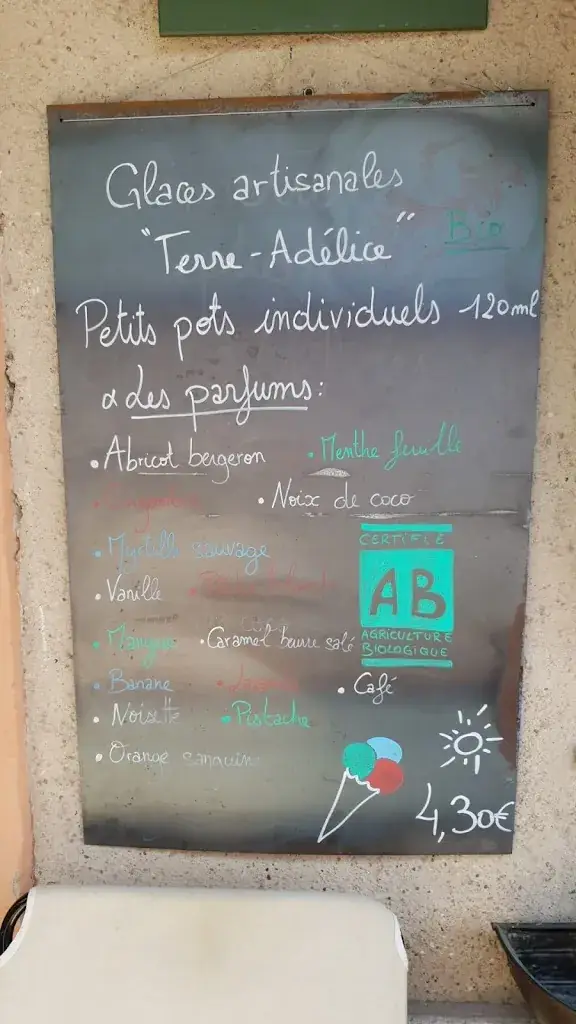 Glaces artisanales
"Terre-Adélice" Bio
Petits pots individuels 120ml
α des parfums:
• Abricot bergeron • Menthe feuille
• Noix de coco
• Myrtille sauvage
• Vanille
• Mangue • Caramel beurre salé
• Banane • Café
• Noisette • Pistache
• Orange sanguine
CERTIFIÉ
AB
AGRICULTURE
BIOLOGIQUE
4,30€